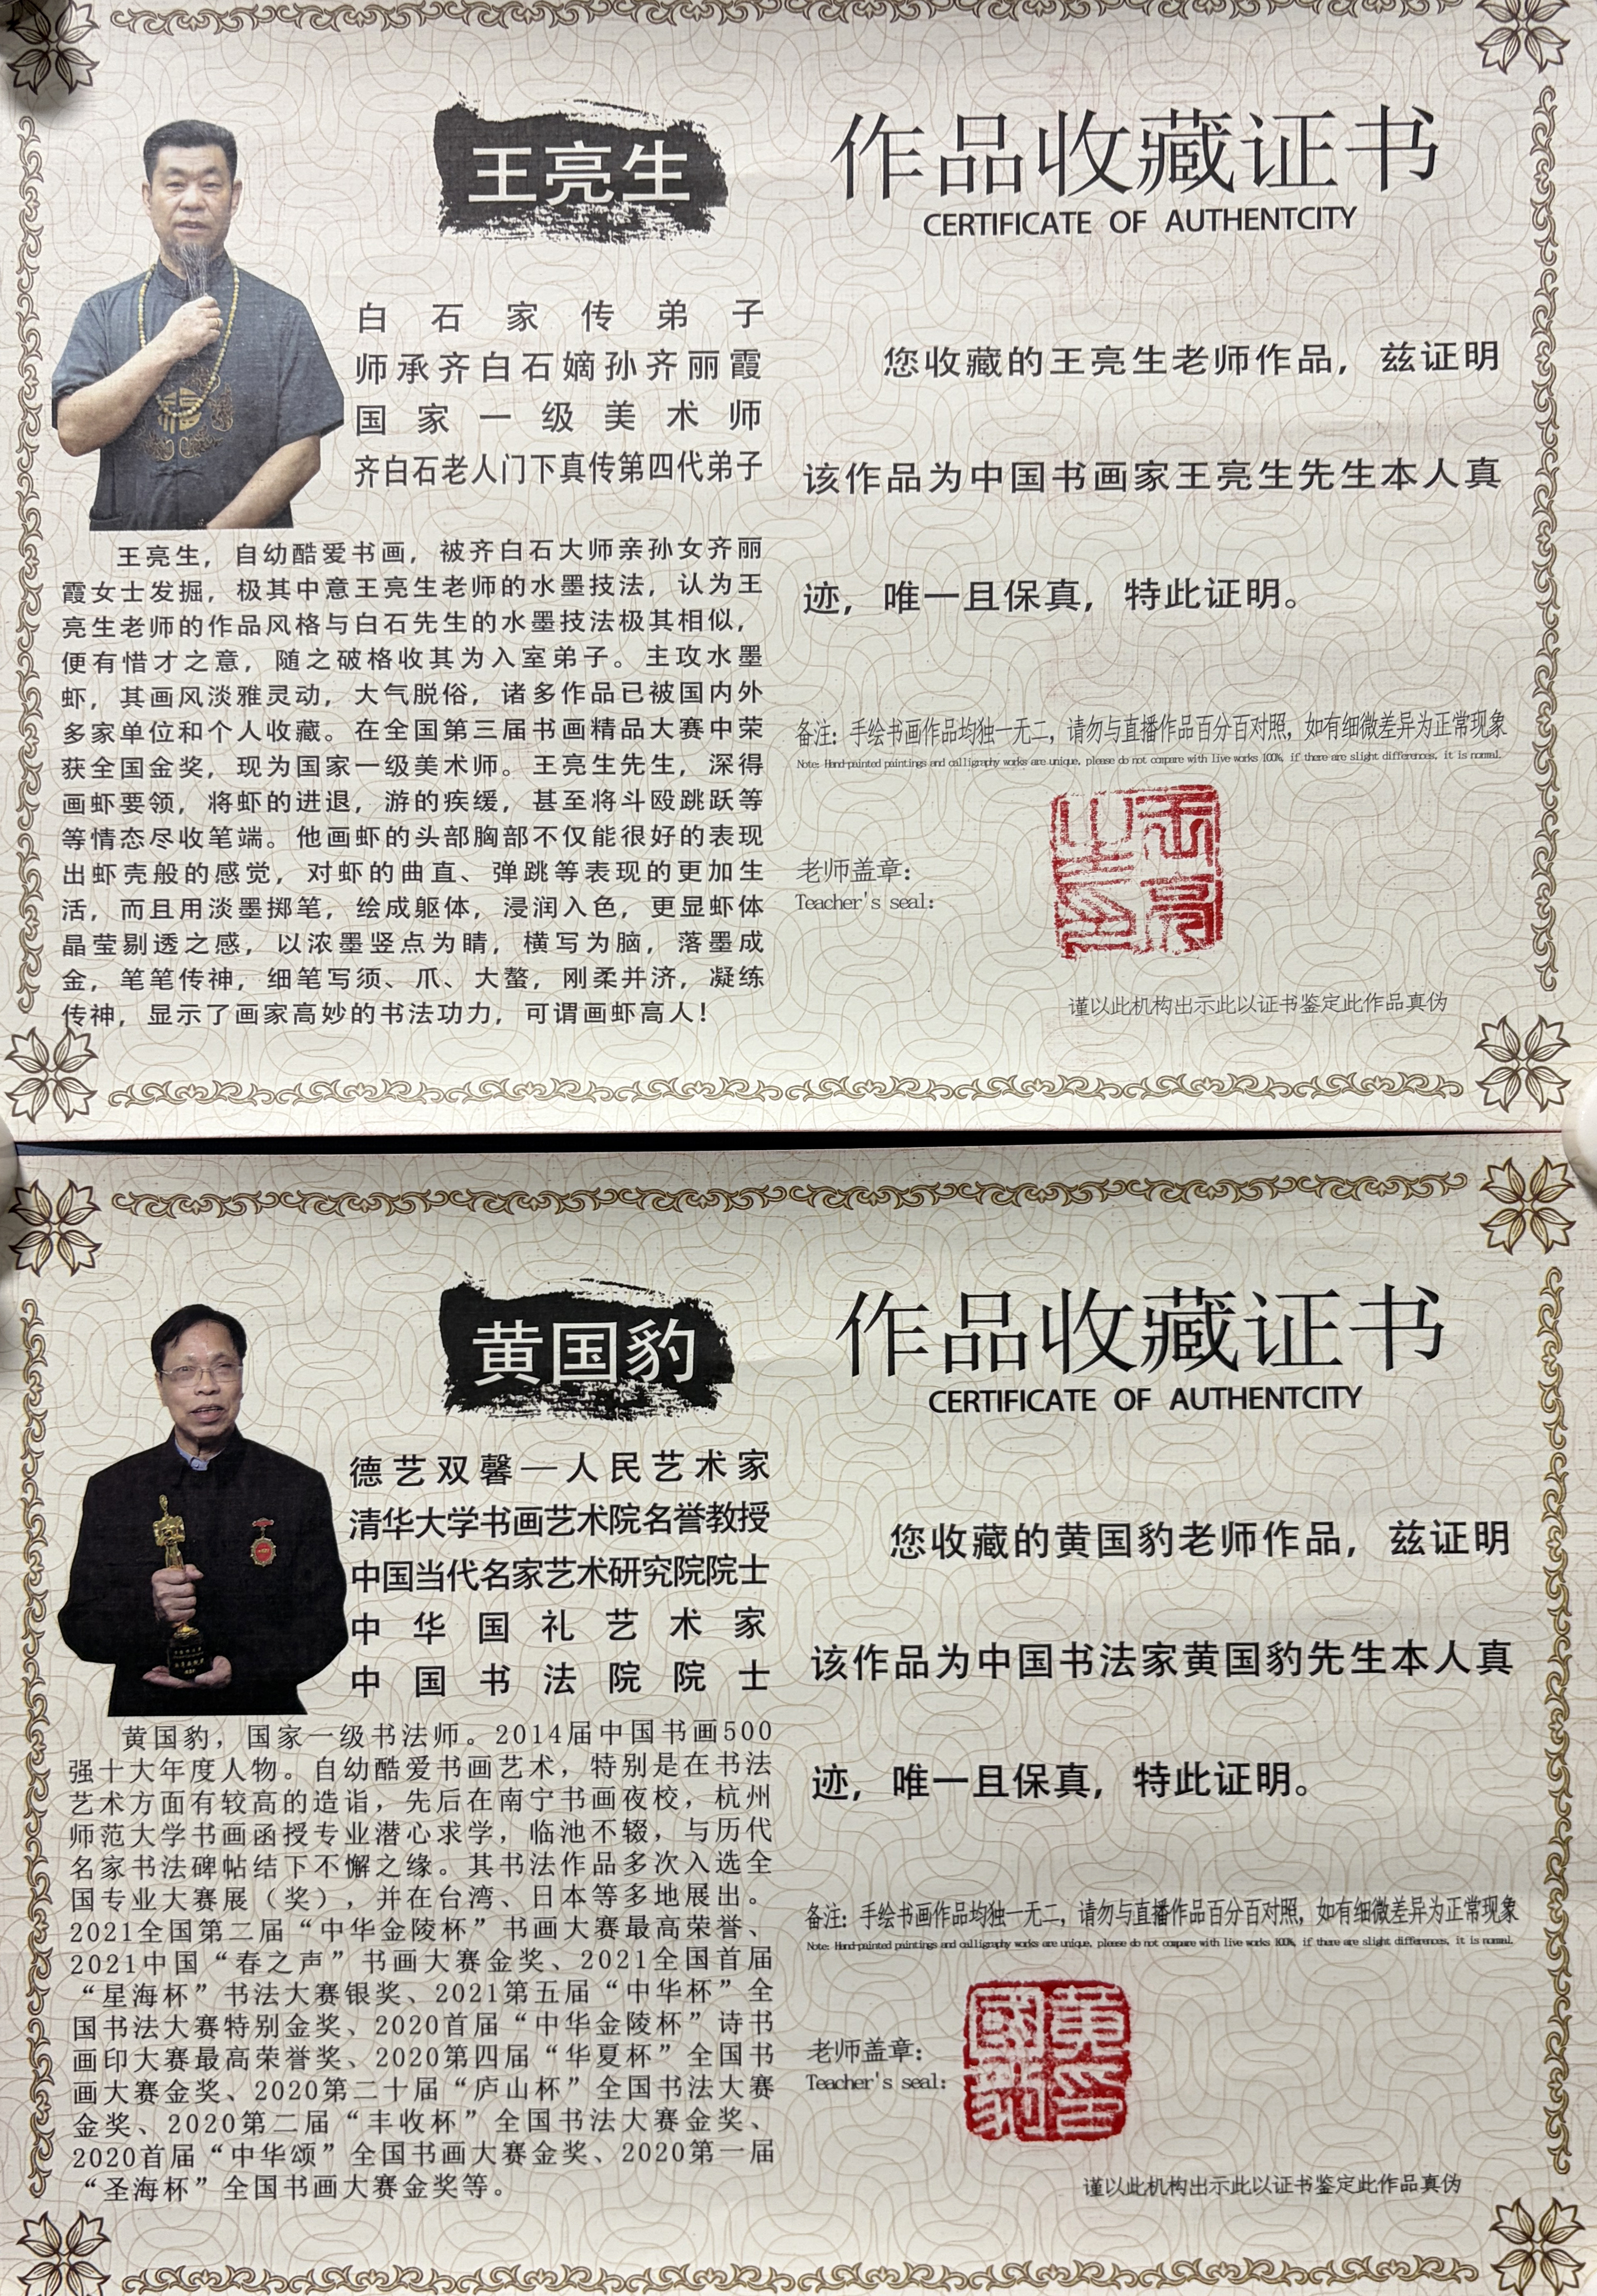 王亮生
白石家传弟子
师承齐白石嫡孙齐丽霞
国家一级美术师
齐白石老人门下真传第四代弟子
王亮生，自幼酷爱书画，被齐白石大师亲孙女齐丽
霞女士发掘，极其中意王亮生老师的水墨技法，认为王
亮生老师的作品风格与白石先生的水墨技法极其相似，
便有惜才之意，随之破格收其为入室弟子。主攻水墨
虾，其画风淡雅灵动，大气脱俗，诸多作品已被国内外
多家单位和个人收藏。在全国第三届书画精品大赛中荣
获全国金奖，现为国家一级美术师。王亮生先生，深得
画虾要领，将虾的进退，游的疾缓，甚至将斗殴跳跃等
等情态尽收笔端。他画虾的头部胸部不仅能很好的表现
出虾壳般的感觉，对虾的曲直、弹跳等表现的更加生
活，而且用淡墨掷笔，绘成躯体，浸润入色，更显虾体
晶莹剔透之感，以浓墨竖点为睛，横写为脑，落墨成
金，笔笔传神，细笔写须、爪、大螯，刚柔并济，凝练
传神，显示了画家高妙的书法功力，可谓画虾高人！
作品收藏证书
CERTIFICATE OF AUTHENTCITY
您收藏的王亮生老师作品，兹证明
该作品为中国书画家王亮生先生本人真
迹，唯一且保真，特此证明。
备注：手绘书画作品均独一无二，请勿与直播作品百分百对照，如有细微差异为正常现象
Note: Hand-painted paintings and calligraphy works are unique, please do not compare with live works 100%, if there are slight differences, it is normal.
老师盖章：
Teacher's seal:
谨以此机构出示此以证书鉴定此作品真伪
黄国豹
德艺双馨—人民艺术家
清华大学书画艺术院名誉教授
中国当代名家艺术研究院院士
中华国礼艺术家
中国书法院院士
黄国豹，国家一级书法师。2014届中国书画500
强十大年度人物。自幼酷爱书画艺术，特别是在书法
艺术方面有较高的造诣，先后在南宁书画夜校，杭州
师范大学书画函授专业潜心求学，临池不辍，与历代
名家书法碑帖结下不懈之缘。其书法作品多次入选全
国专业大赛展（奖），并在台湾、日本等多地展出。
2021全国第二届“中华金陵杯”书画大赛最高荣誉、
2021中国“春之声”书画大赛金奖、2021全国首届
“星海杯”书法大赛银奖、2021第五届“中华杯”全
国书法大赛特别金奖、2020首届“中华金陵杯”诗书
画印大赛最高荣誉奖、2020第四届“华夏杯”全国书
画大赛金奖、2020第二十届“庐山杯”全国书法大赛
金奖、2020第二届“丰收杯”全国书法大赛金奖、
2020首届“中华颂”全国书画大赛金奖、2020第一届
“圣海杯”全国书画大赛金奖等。
作品收藏证书
CERTIFICATE OF AUTHENTCITY
您收藏的黄国豹老师作品，兹证明
该作品为中国书法家黄国豹先生本人真
迹，唯一且保真，特此证明。
备注：手绘书画作品均独一无二，请勿与直播作品百分百对照，如有细微差异为正常现象
Note: Hand-painted paintings and calligraphy works are unique, please do not compare with live works 100%, if there are slight differences, it is normal.
老师盖章：
Teacher's seal:
黄國豹印
谨以此机构出示此以证书鉴定此作品真伪